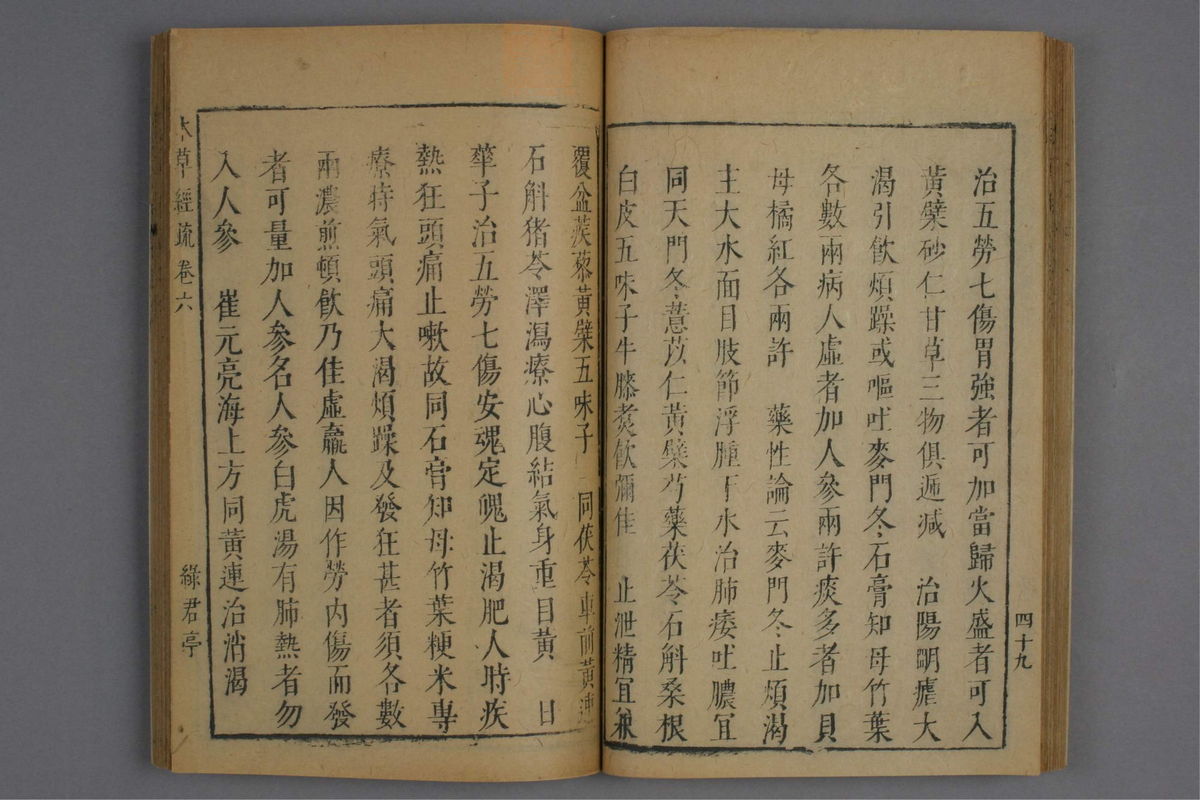 治五勞七傷胃強者可加當歸火盛者可入
黃檗砂仁甘草三物俱遞減　治陽明瘧大
渴引飲煩躁或嘔吐麥門冬石膏知母竹葉
各數兩病人虛者加人參兩許痰多者加貝
母橘紅各兩許　藥性論云麥門冬止煩渴
主大水面目肢節浮腫下水治肺痿吐膿宜
同天門冬薏苡仁黃檗芍藥茯苓石斛桑根
白皮五味子牛膝煑飲彌佳　止泄精宜兼
四十九
覆盆蒺藜黃檗五味子　同茯苓車前黃連
石斛猪苓澤瀉療心腹結氣身重目黃　日
華子治五勞七傷安魂定魄止渴肥人時疾
熱狂頭痛止嗽故同石膏知母竹葉粳米專
療時氣頭痛大渴煩躁及發狂甚者須各數
兩濃煎頓飲乃佳虛羸人因作勞內傷而發
者可量加人參名人參白虎湯有肺熱者勿
入人參　崔元亮海上方同黃連治消渴
本草經疏 卷六
綠君亭